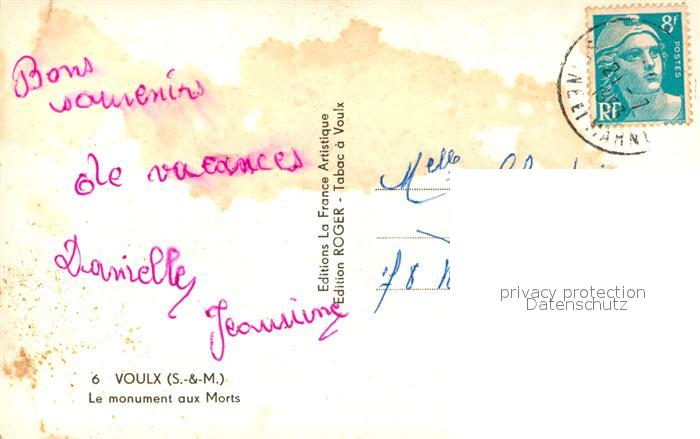 Bons
souvenirs
de vacances
Danielle
Jeannine
6 VOULX (S.-&-M.)
Le monument aux Morts
Editions La France Artistique
Edition ROGER - Tabac à Voulx
8f
POSTES
RF
NE ET MARNE
Melle
78
privacy protection
Datenschutz